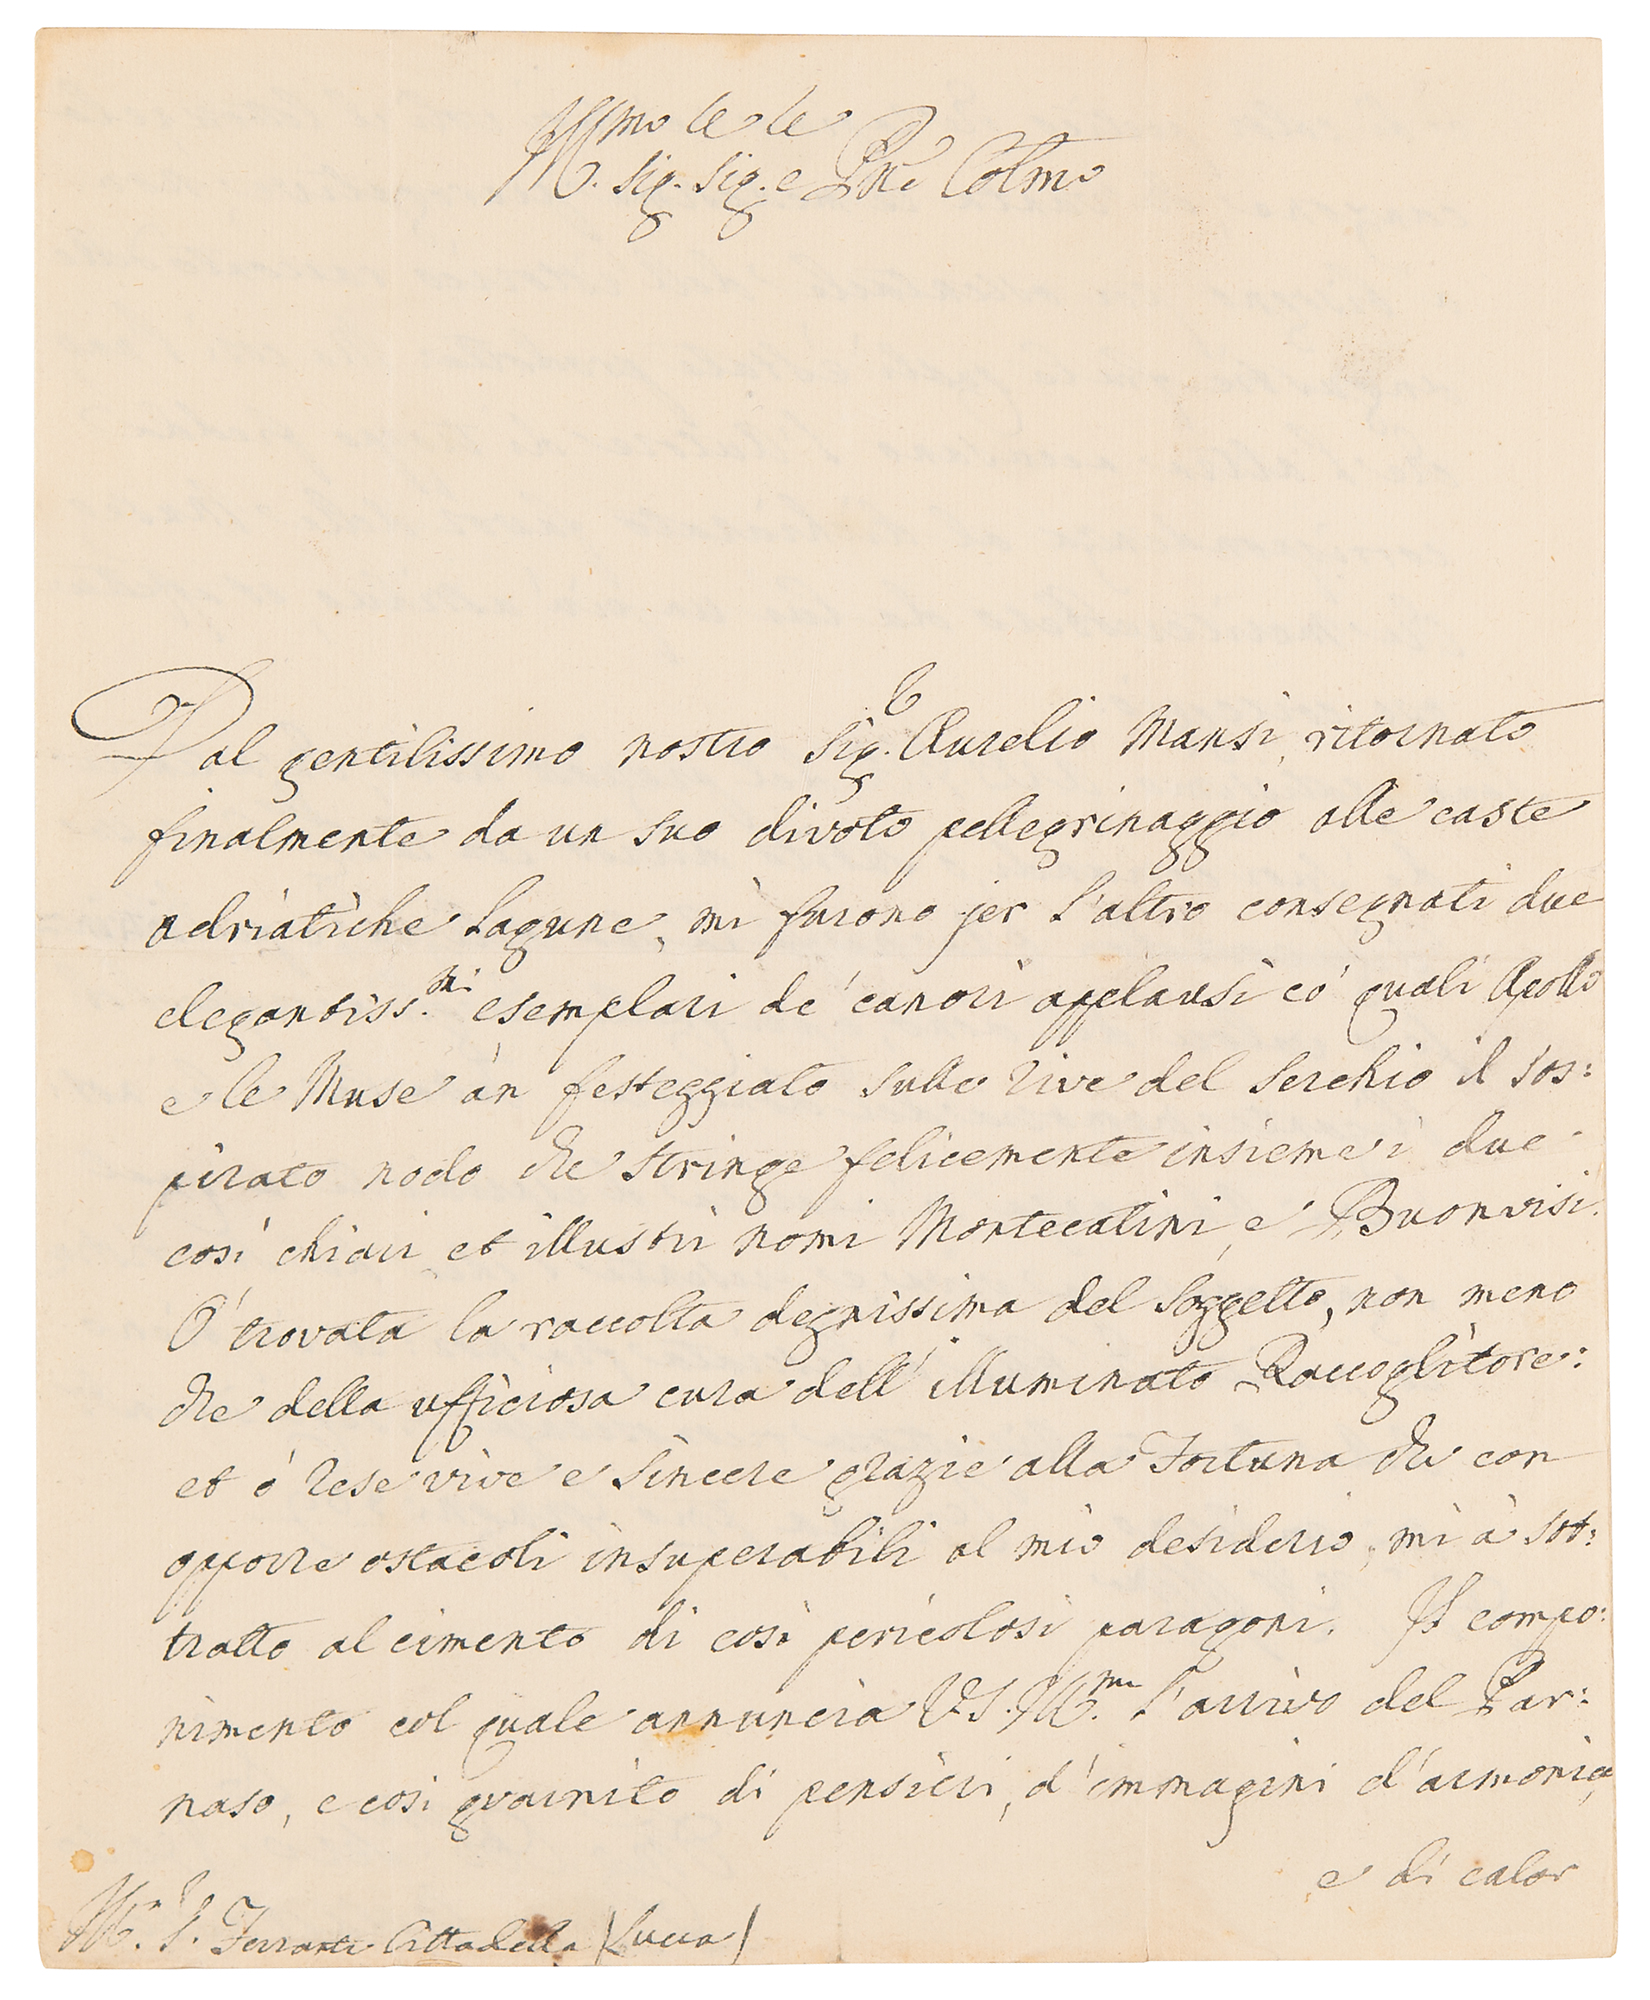 Ill.mo Sig.re Sig.re e Pne Colmo
Dal gentilissimo nostro Sig.e Aurelio Mansi, ritornato
finalmente da un suo divoto pellegrinaggio alle caste
adriatiche Lagune, mi furono jer l'altro consegnati due
elegantiss.mi esemplari de' canori applausi co' quali Apollo
e le Muse àn festeggiato sulle rive del Serchio il sos:
pirato nodo che stringe felicemente insieme i due
così chiari et illustri nomi Montecatini, e Buonvisi.
Ò trovata la raccolta degnissima del Soggetto, non meno
che della ufficiosa cura dell'illuminato Raccoglitore:
et ò rese vive e sincere grazie alla Fortuna che con
opporre ostacoli insuperabili al mio desiderio, mi à sot:
tratto al cimento di così pericolosi paragoni. Il compo:
nimento col quale annuncia V.S. Ill.ma l'arrivo del Par:
naso, e così guarnito di pensieri, d'immagini d'armonia,
e di calor
Ill. S. Ferrante Cittadella (Lucca)